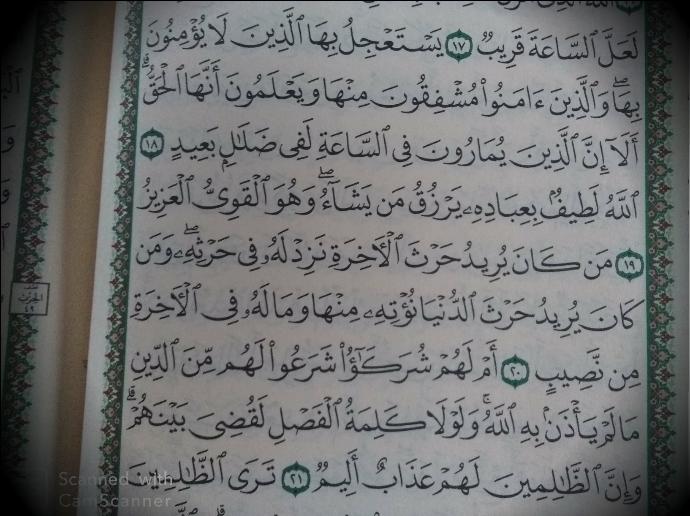 لَعَلَّ ٱلسَّاعَةَ قَرِيبٌ ١٧ يَسْتَعْجِلُ بِهَا ٱلَّذِينَ لَا يُؤْمِنُونَ
بِهَاۖ وَٱلَّذِينَ ءَامَنُوا۟ مُشْفِقُونَ مِنْهَا وَيَعْلَمُونَ أَنَّهَا ٱلْحَقُّۗ
أَلَآ إِنَّ ٱلَّذِينَ يُمَارُونَ فِى ٱلسَّاعَةِ لَفِى ضَلَـٰلٍۭ بَعِيدٍ ١٨
ٱللَّهُ لَطِيفٌۢ بِعِبَادِهِۦ يَرْزُقُ مَن يَشَآءُۖ وَهُوَ ٱلْقَوِىُّ ٱلْعَزِيزُ
١٩ مَن كَانَ يُرِيدُ حَرْثَ ٱلْـَٔاخِرَةِ نَزِدْ لَهُۥ فِى حَرْثِهِۦۖ وَمَن
كَانَ يُرِيدُ حَرْثَ ٱلدُّنْيَا نُؤْتِهِۦ مِنْهَا وَمَا لَهُۥ فِى ٱلْـَٔاخِرَةِ
مِن نَّصِيبٍ ٢٠ أَمْ لَهُمْ شُرَكَـٰٓؤُا۟ شَرَعُوا۟ لَهُم مِّنَ ٱلدِّينِ
مَا لَمْ يَأْذَنۢ بِهِ ٱللَّهُۚ وَلَوْلَا كَلِمَةُ ٱلْفَصْلِ لَقُضِىَ بَيْنَهُمْۗ
وَإِنَّ ٱلظَّـٰلِمِينَ لَهُمْ عَذَابٌ أَلِيمٌ ٢١ تَرَى ٱلظَّـٰلِمِينَ
الحزب
٤٩
Scanned with
CamScanner